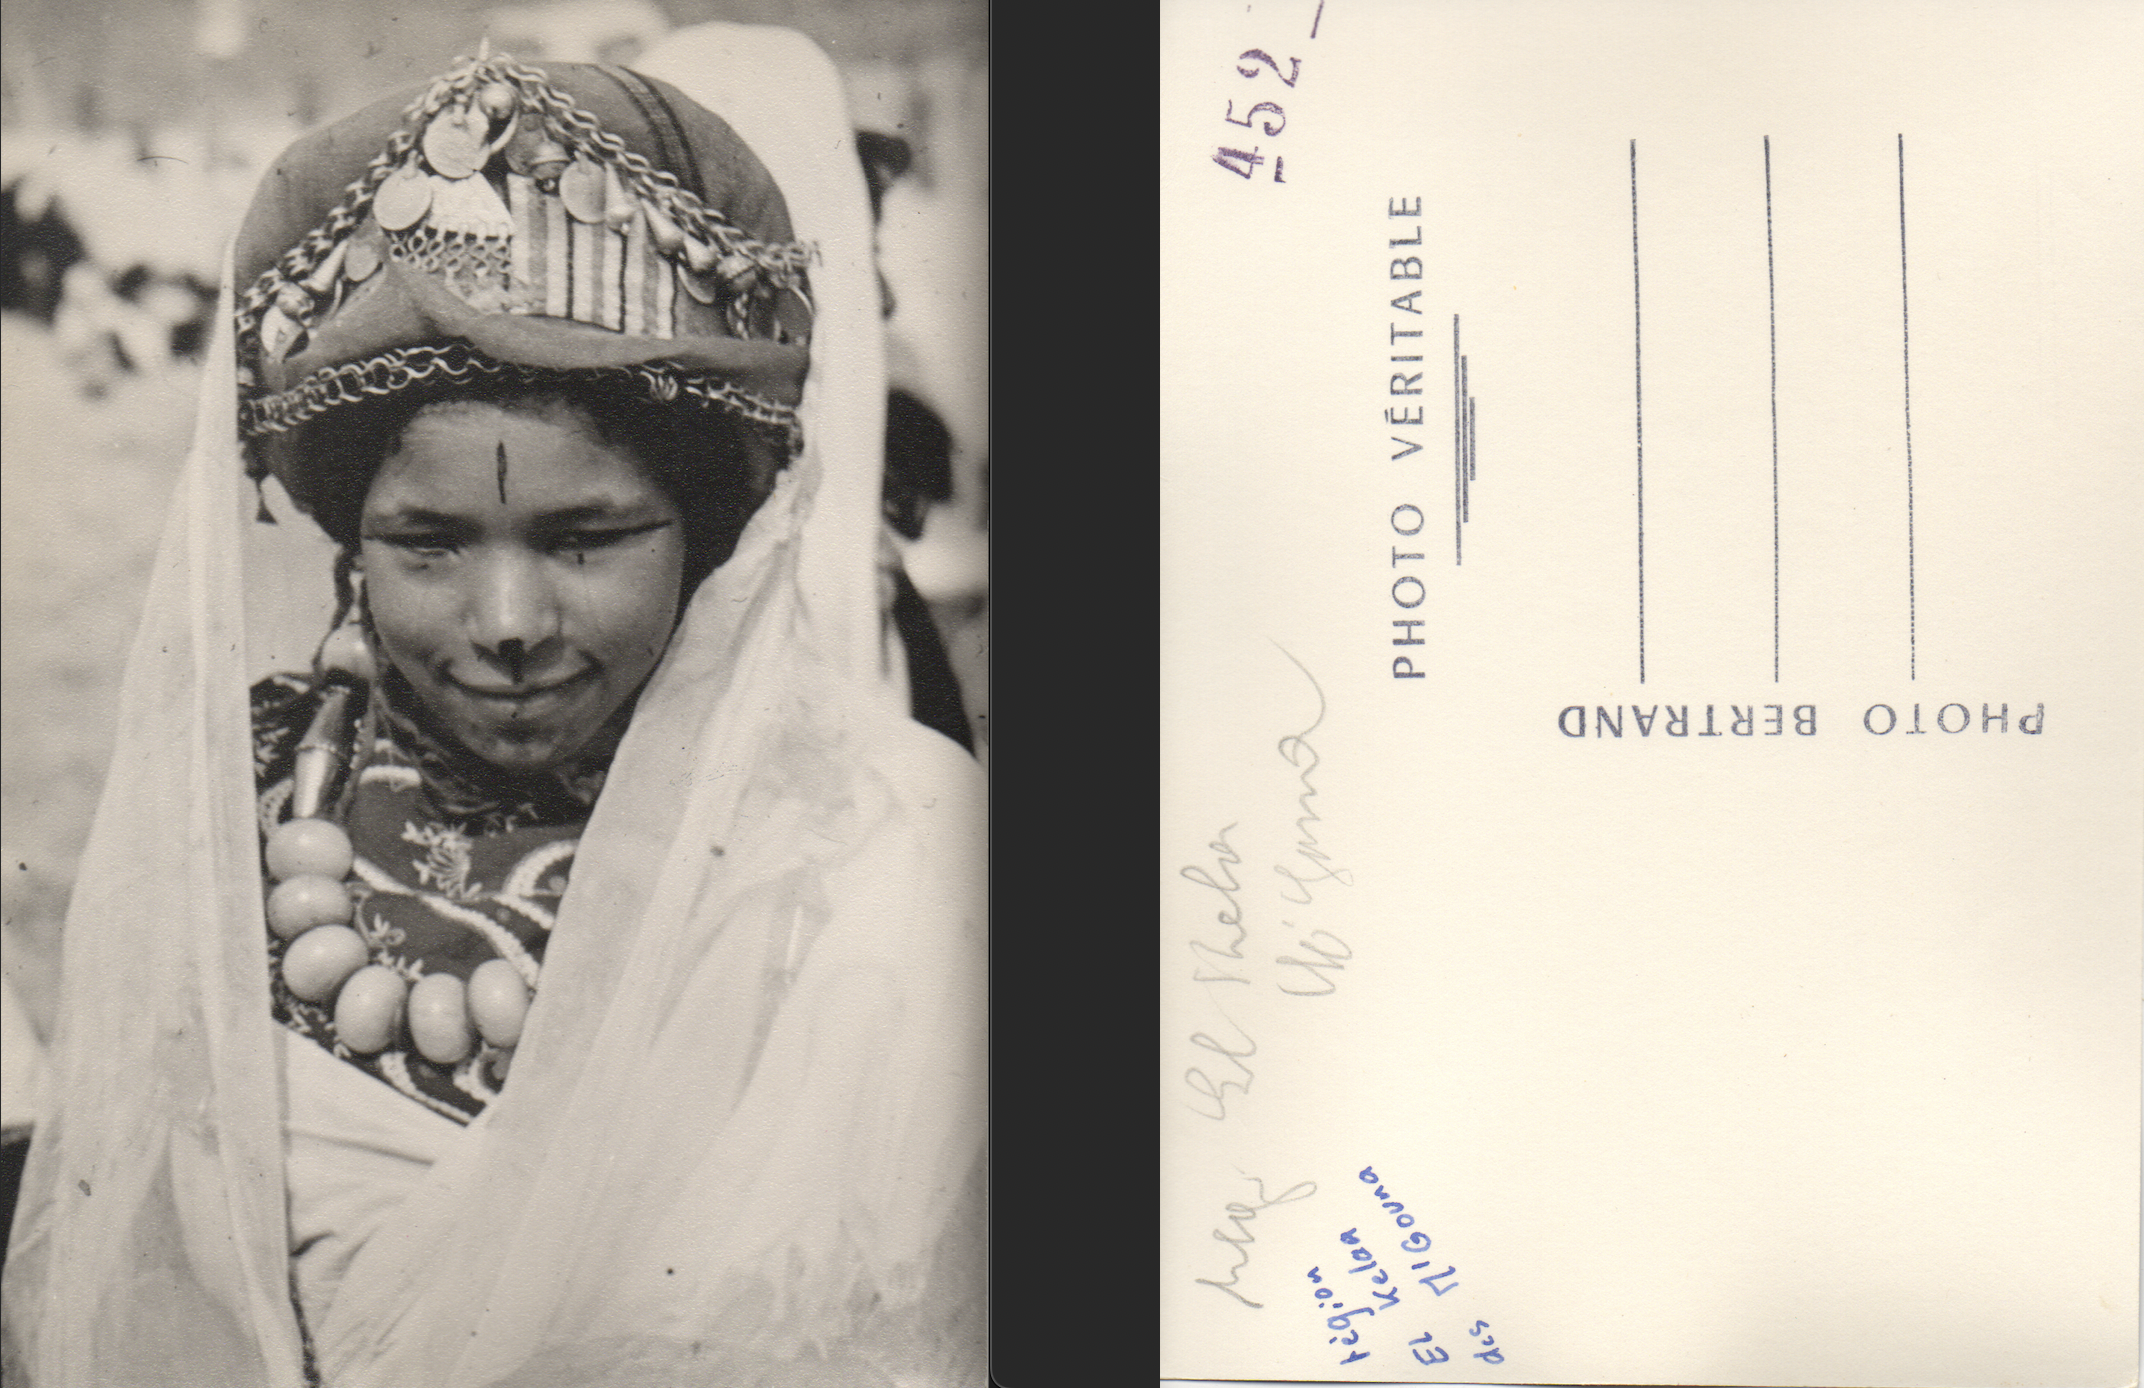 452
PHOTO VÉRITABLE
PHOTO BERTRAND
El Kelaa
M'Gouna
région
El Kelaa
des M'Gouna